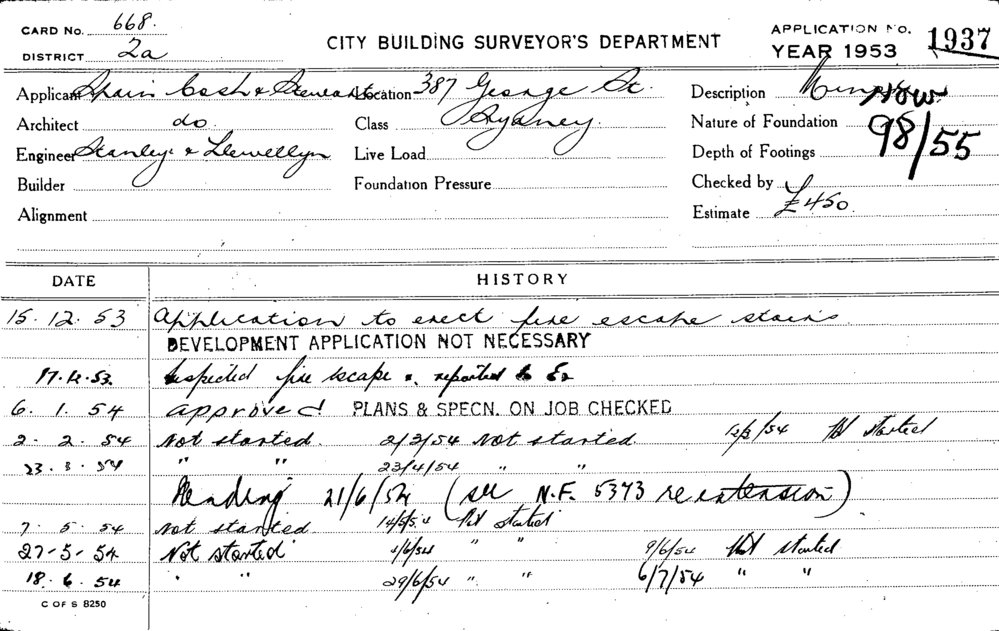 CARD No. 668.
DISTRICT 2a
CITY BUILDING SURVEYOR'S DEPARTMENT
APPLICATION No. 1937
YEAR 1953
Applicant Spain Cosh & Stewart Location 387 George St. Description
Architect do. Class Sydney Nature of Foundation Now 98/55
Engineer Stanley & Llewellyn Live Load Depth of Footings
Builder Foundation Pressure Checked by
Alignment Estimate £450.
DATE HISTORY
15.12.53 Application to erect fire escape stairs
DEVELOPMENT APPLICATION NOT NECESSARY
17.12.53. Inspected fire escape & reported to
6.1.54 Approved PLANS & SPECN. ON JOB CHECKED
2.2.54 Not started. 2/3/54 Not started. 12/3/54 Not started
23.3.54 " " 23/4/54 " "
Pending 21/6/54 (see N.F. 5373 re extension)
7.5.54 Not started. 14/5/54 Not started
27-5-54 Not started 4/6/54 " " 9/6/54 Not started
18.6.54 " " 29/6/54 " " 6/7/54 " "
C OF S 8250